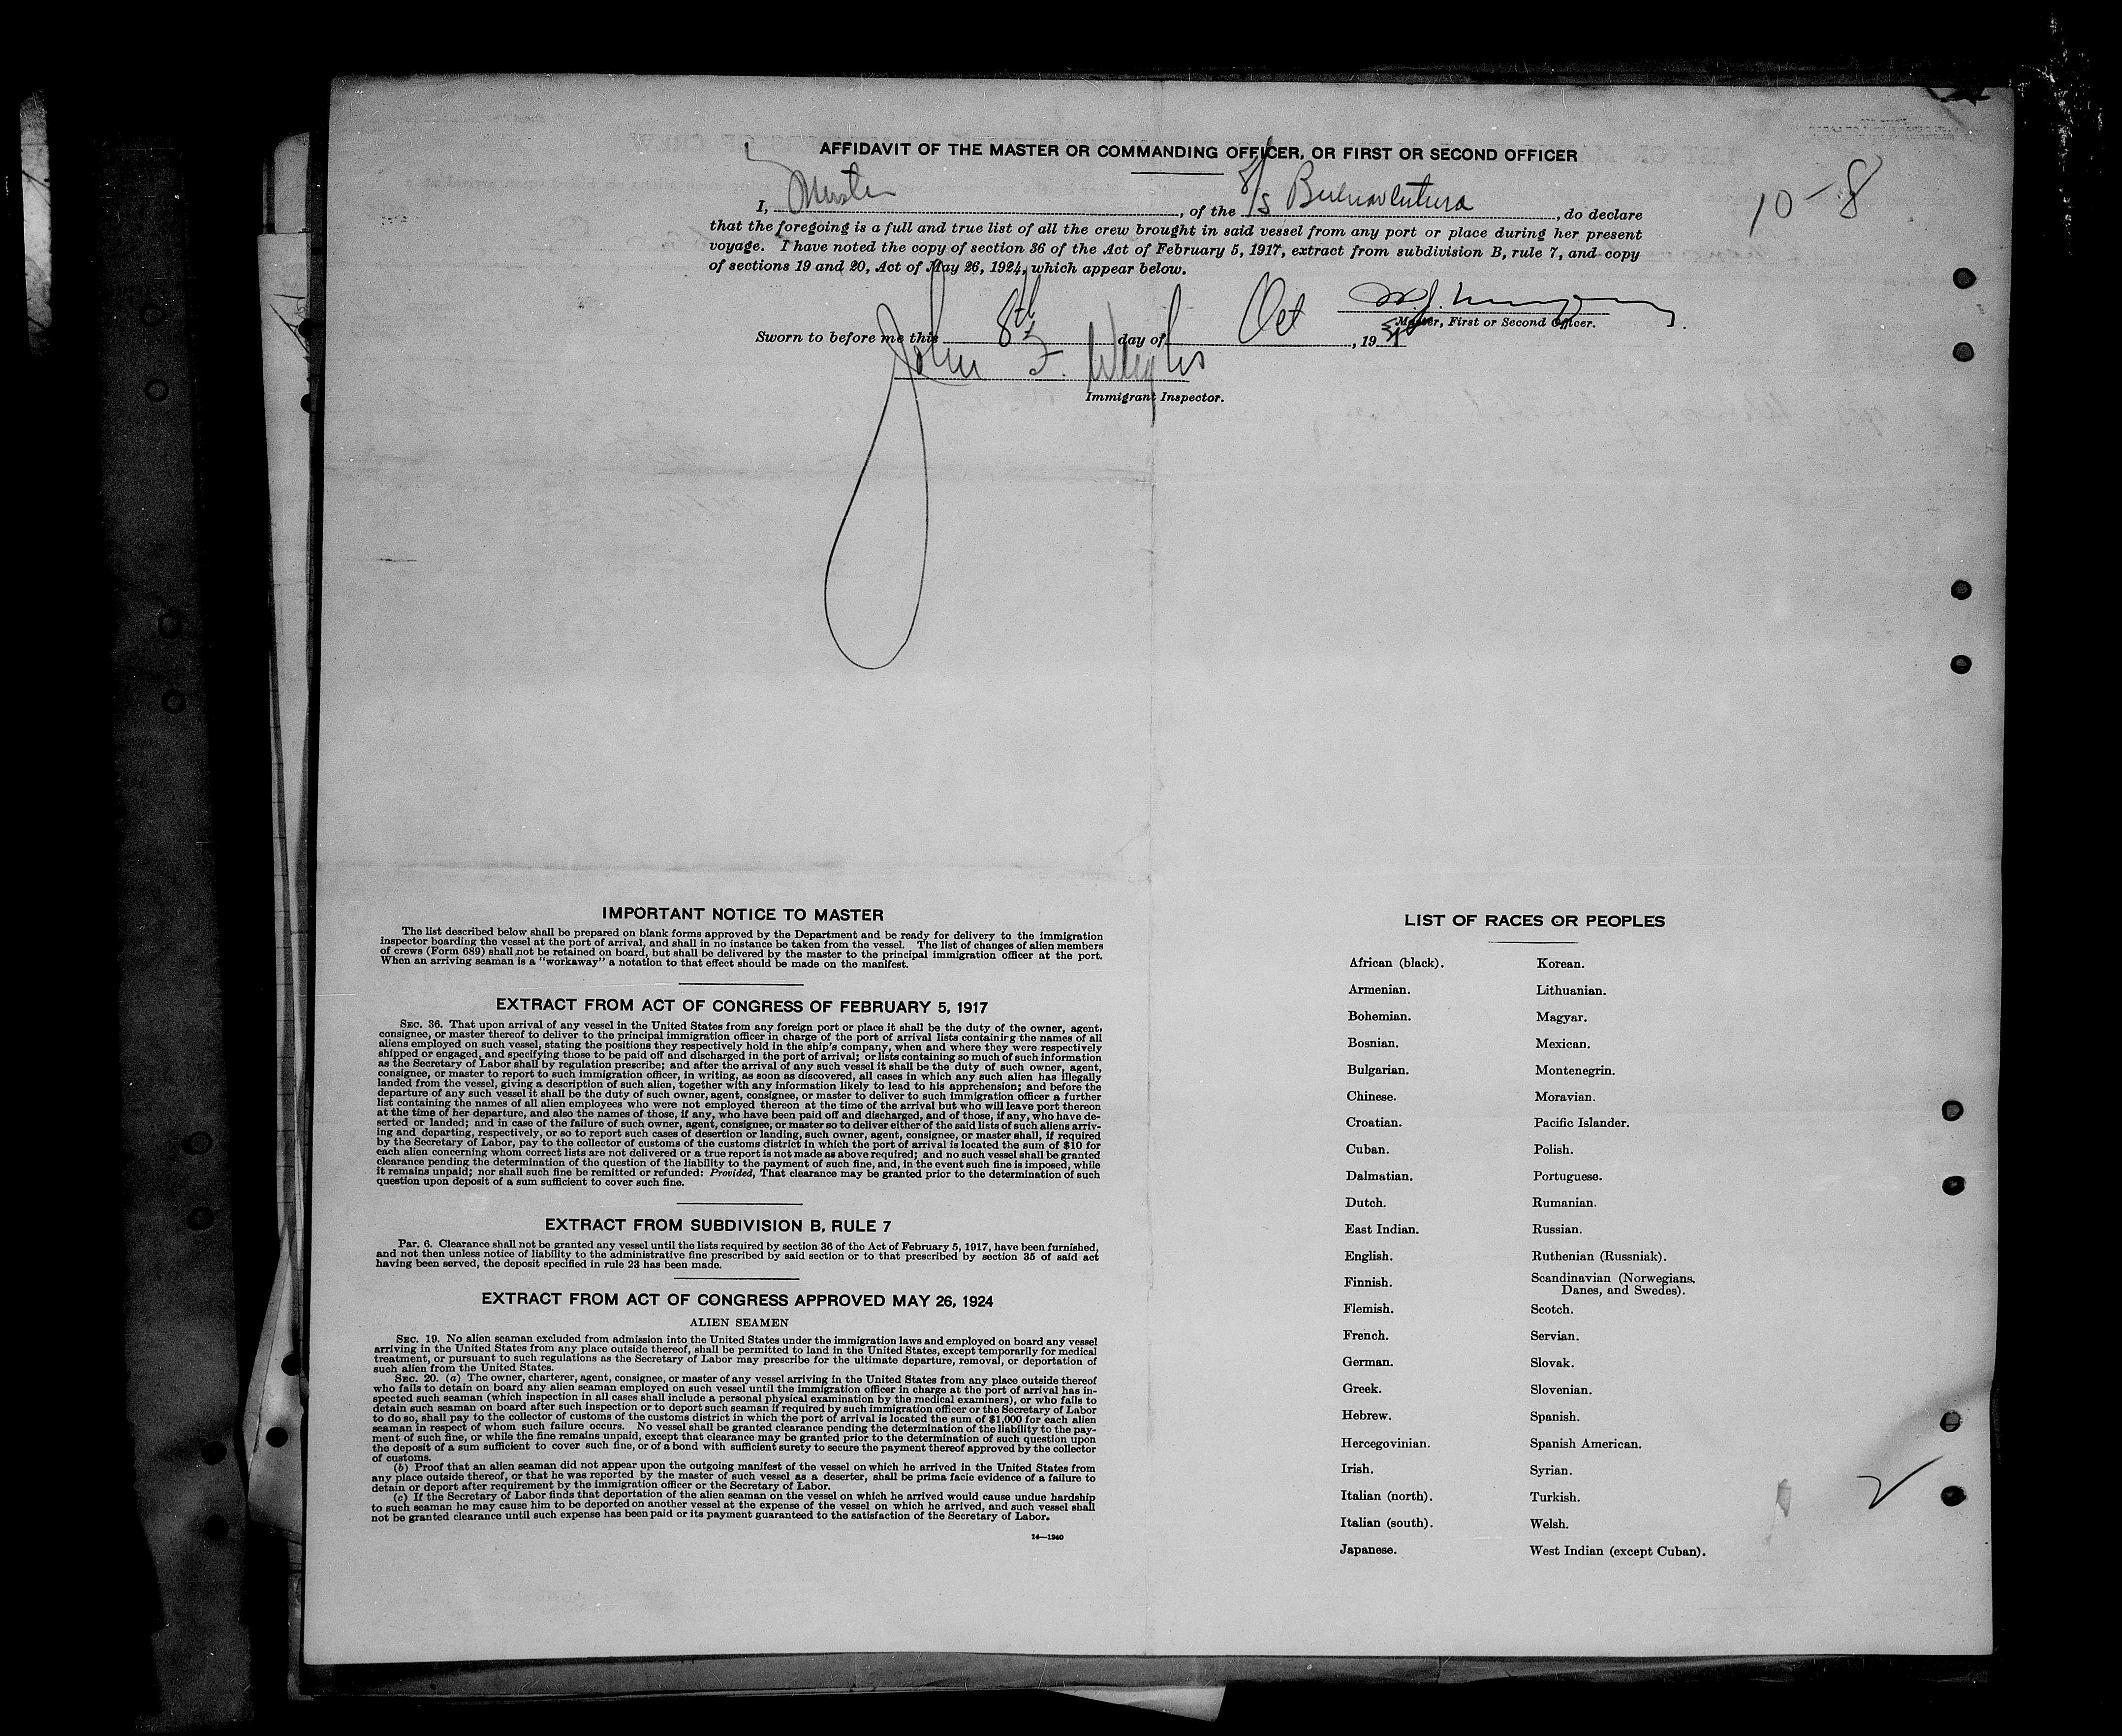 AFFIDAVIT OF THE MASTER OR COMMANDING OFFICER, OR FIRST OR SECOND OFFICER
10-8
I, Master, of the S/S Buenaventura, do declare
that the foregoing is a full and true list of all the crew brought in said vessel from any port or place during her present
voyage. I have noted the copy of section 36 of the Act of February 5, 1917, extract from subdivision B, rule 7, and copy
of sections 19 and 20, Act of May 26, 1924, which appear below.
Master, First or Second Officer.
Sworn to before me this 8th day of Oct, 19
John F.
Immigrant Inspector.
IMPORTANT NOTICE TO MASTER
The list described below shall be prepared on blank forms approved by the Department and be ready for delivery to the immigration
inspector boarding the vessel at the port of arrival, and shall in no instance be taken from the vessel. The list of changes of alien members
of crews (Form 689) shall not be retained on board, but shall be delivered by the master to the principal immigration officer at the port.
When an arriving seaman is a "workaway" a notation to that effect should be made on the manifest.
EXTRACT FROM ACT OF CONGRESS OF FEBRUARY 5, 1917
SEC. 36. That upon arrival of any vessel in the United States from any foreign port or place it shall be the duty of the owner, agent,
consignee, or master thereof to deliver to the principal immigration officer in charge of the port of arrival lists containing the names of all
aliens employed on such vessel, stating the positions they respectively hold in the ship's company, when and where they were respectively
shipped or engaged, and specifying those to be paid off and discharged in the port of arrival; or lists containing so much of such information
as the Secretary of Labor shall by regulation prescribe; and after the arrival of any such vessel it shall be the duty of such owner, agent,
consignee, or master to report to such immigration officer, in writing, as soon as discovered, all cases in which any such alien has illegally
landed from the vessel, giving a description of such alien, together with any information likely to lead to his apprehension; and before the
departure of any such vessel it shall be the duty of such owner, agent, consignee, or master to deliver to such immigration officer a further
list containing the names of all alien employees who were not employed thereon at the time of the arrival but who will leave port thereon
at the time of her departure, and also the names of those, if any, who have been paid off and discharged, and of those, if any, who have de-
serted or landed; and in case of the failure of such owner, agent, consignee, or master so to deliver either of the said lists of such aliens arriv-
ing and departing, respectively, or so to report such cases of desertion or landing, such owner, agent, consignee, or master shall, if required
by the Secretary of Labor, pay to the collector of customs of the customs district in which the port of arrival is located the sum of $10 for
each alien concerning whom correct lists are not delivered or a true report is not made as above required; and no such vessel shall be granted
clearance pending the determination of the question of the liability to the payment of such fine, and, in the event such fine is imposed, while
it remains unpaid; nor shall such fine be remitted or refunded: Provided, That clearance may be granted prior to the determination of such
question upon deposit of a sum sufficient to cover such fine.
EXTRACT FROM SUBDIVISION B, RULE 7
PAR. 6. Clearance shall not be granted any vessel until the lists required by section 36 of the Act of February 5, 1917, have been furnished,
and not then unless notice of liability to the administrative fine prescribed by said section or to that prescribed by section 35 of said act
having been served, the deposit specified in rule 23 has been made.
EXTRACT FROM ACT OF CONGRESS APPROVED MAY 26, 1924
ALIEN SEAMEN
SEC. 19. No alien seaman excluded from admission into the United States under the immigration laws and employed on board any vessel
arriving in the United States from any place outside thereof, shall be permitted to land in the United States, except temporarily for medical
treatment, or pursuant to such regulations as the Secretary of Labor may prescribe for the ultimate departure, removal, or deportation of
such alien from the United States.
SEC. 20. (a) The owner, charterer, agent, consignee, or master of any vessel arriving in the United States from any place outside thereof
who fails to detain on board any alien seaman employed on such vessel until the immigration officer in charge at the port of arrival has in-
spected such seaman (which inspection in all cases shall include a personal physical examination by the medical examiners), or who fails to
detain such seaman on board after such inspection or to deport such seaman if required by such immigration officer or the Secretary of Labor
to do so, shall pay to the collector of customs of the customs district in which the port of arrival is located the sum of $1,000 for each alien
seaman in respect of whom such failure occurs. No vessel shall be granted clearance pending the determination of the liability to the pay-
ment of such fine, or while the fine remains unpaid, except that clearance may be granted prior to the determination of such question upon
the deposit of a sum sufficient to cover such fine, or of a bond with sufficient surety to secure the payment thereof approved by the collector
of customs.
(b) Proof that an alien seaman did not appear upon the outgoing manifest of the vessel on which he arrived in the United States from
any place outside thereof, or that he was reported by the master of such vessel as a deserter, shall be prima facie evidence of a failure to
detain or deport after requirement by the immigration officer or the Secretary of Labor.
(c) If the Secretary of Labor finds that deportation of the alien seaman on the vessel on which he arrived would cause undue hardship
to such seaman he may cause him to be deported on another vessel at the expense of the vessel on which he arrived, and such vessel shall
not be granted clearance until such expense has been paid or its payment guaranteed to the satisfaction of the Secretary of Labor.
14—1240
LIST OF RACES OR PEOPLES
African (black). Korean.
Armenian. Lithuanian.
Bohemian. Magyar.
Bosnian. Mexican.
Bulgarian. Montenegrin.
Chinese. Moravian.
Croatian. Pacific Islander.
Cuban. Polish.
Dalmatian. Portuguese.
Dutch. Rumanian.
East Indian. Russian.
English. Ruthenian (Russniak).
Finnish. Scandinavian (Norwegians,
Danes, and Swedes).
Flemish. Scotch.
French. Servian.
German. Slovak.
Greek. Slovenian.
Hebrew. Spanish.
Hercegovinian. Spanish American.
Irish. Syrian.
Italian (north). Turkish.
Italian (south). Welsh.
Japanese. West Indian (except Cuban).